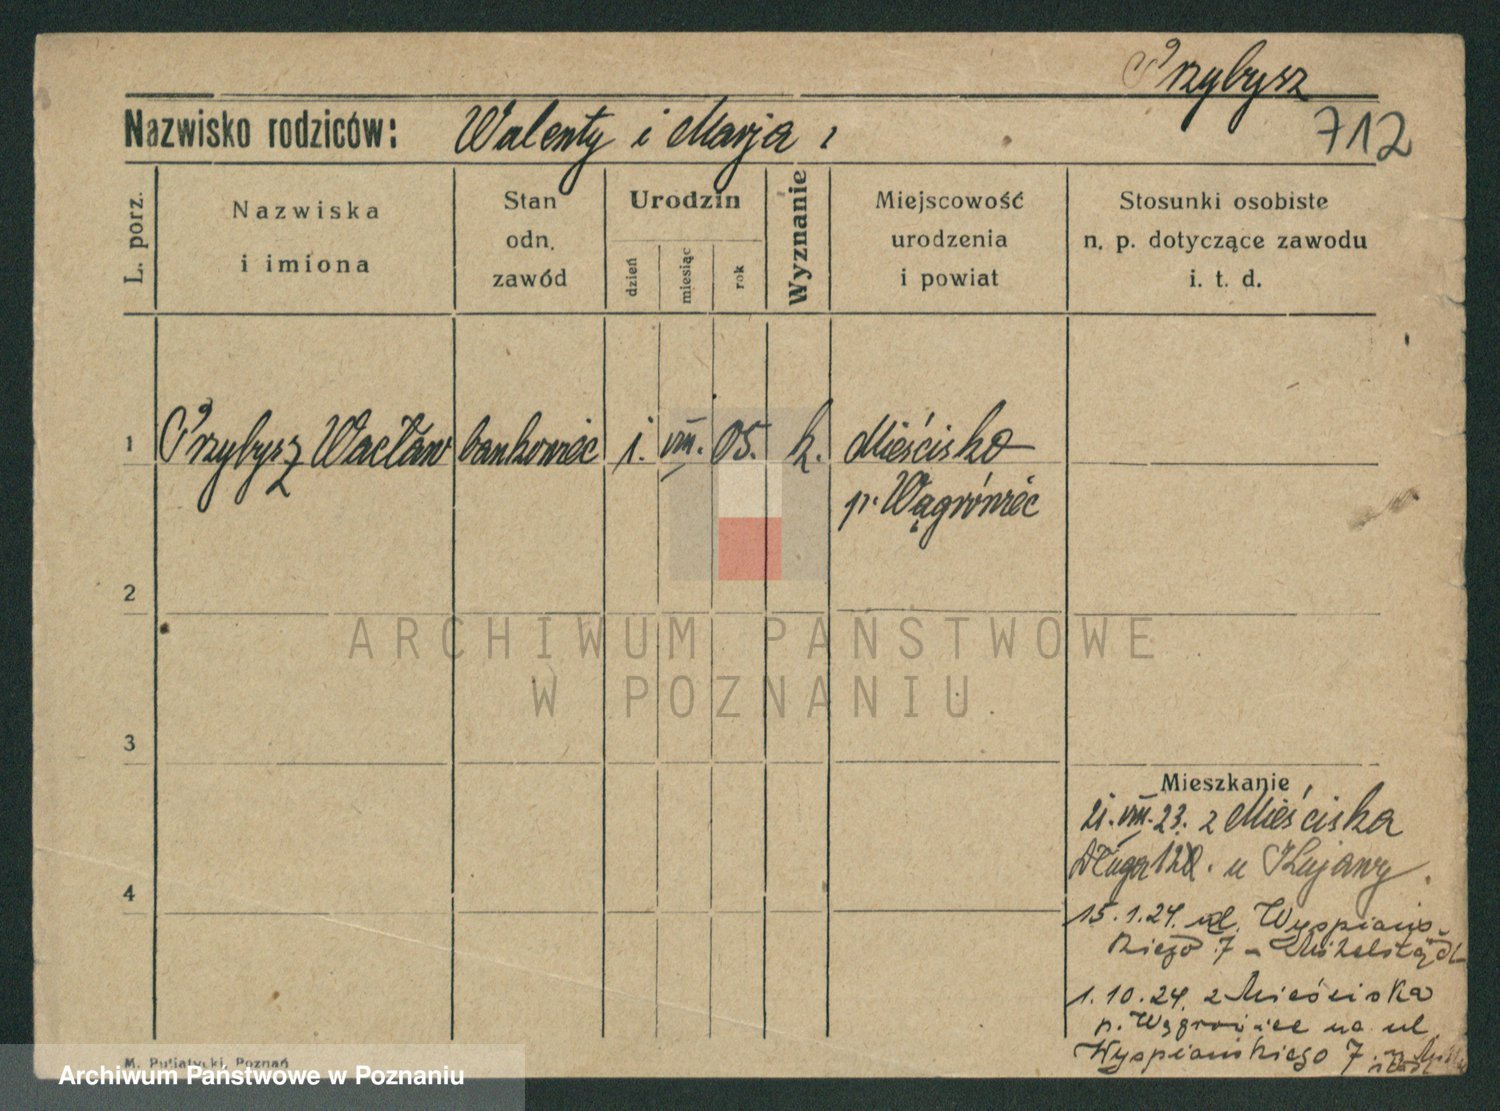 Przybysz
Nazwisko rodziców: Walenty i Marja
712
L. porz.
Nazwiska
i imiona
Stan
odn.
zawód
Urodzin
dzień
miesiąc
rok
Wyznanie
Miejscowość
urodzenia
i powiat
Stosunki osobiste
n. p. dotyczące zawodu
i. t. d.
1 Przybysz Wacław bankowiec 1. VIII. 05. k. Mieścisko
p. Wągrówiec
2
ARCHIWUM PAŃSTWOWE
W POZNANIU
3
Mieszkanie
21. VIII. 23. z Mieściska
Długa u Kujawy.
4
15.1.24. ul. Wyspiańs-
kiego 7 -
1.10.24. z Mieściska
p. Wągrowiec na ul
Wyspiańskiego 7.
M. Putiatycki, Poznań
Archiwum Państwowe w Poznaniu